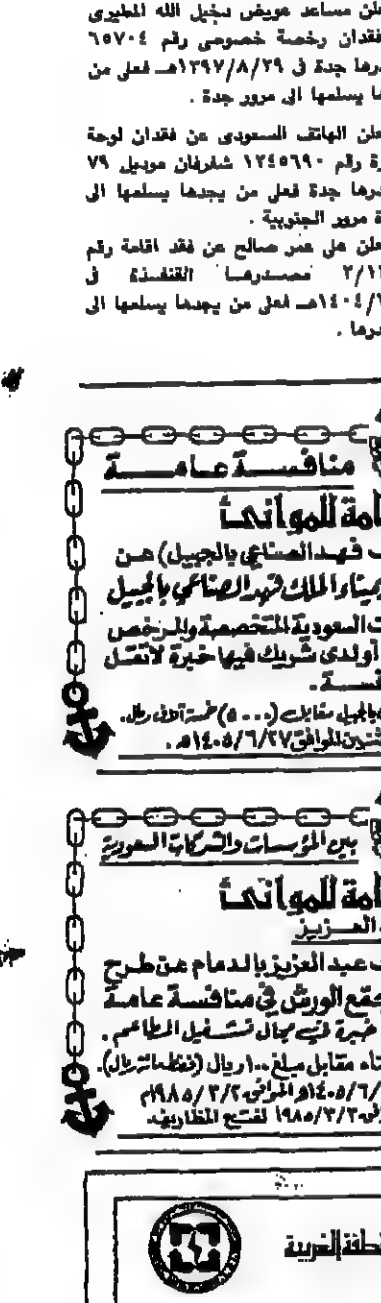 مساعد عويض دخيل الله المطيرى
فقدان رخصة خصوصى رقم ٦٥٧٠٤
جدة فى ١٣٩٧/٨/٢٩هـ فعلى من
يسلمها الى مرور جدة .
الهاتف السعودى عن فقدان لوحة
رقم ١٢٤٥٦٩٠ شفرفان موديل ٧٩
جدة فعلى من يجدها يسلمها الى
مرور الجنوبية .
على عمر صالح عن فقد اقامة رقم
مصدرها القنفذة فى
فعلى من يجدها يسلمها الى
منافســة عـامــة
للموانئ
فهد الصناعى بالجبيل) عن
بميناء الملك فهد الصناعى بالجبيل
السعودية المتخصصة والمرخص
أو لدى شريك فيها خبرة لا تقل
بالجبيل مقابل (٥٠٠٠) خمسة آلاف ريال.
الموافق ١٤٠٥/٦/٢٧هـ .
بين المؤسسات والشركات السعودية
للموانئ
العــزيز
عبد العزيز بالدمام عن طرح
الورش فى منافسة عامة
خبرة فى مجال تشغيل المطاعم .
مقابل مبلغ ١٠٠ ريال (فقط مائة ريال).
١٤٠٥/٦/ هـ الموافق ١٩٨٥/٣/٢م
١٩٨٥/٣/٢ لفتح المظاريف
الغربية